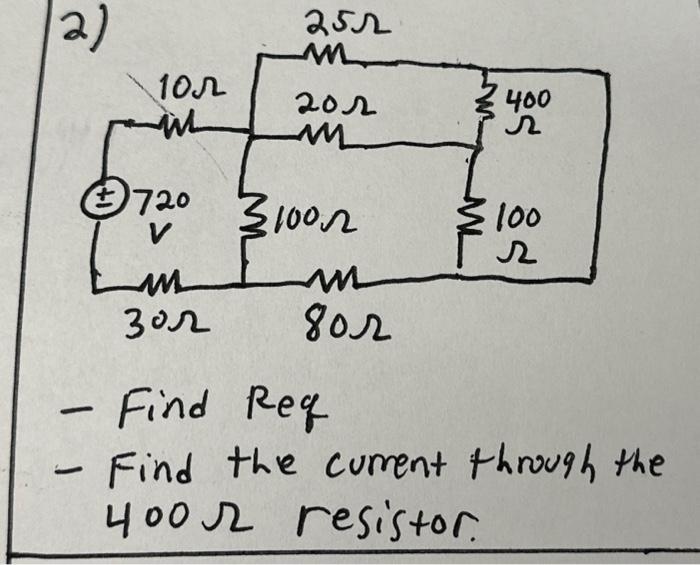 2)
25Ω
10Ω
20Ω
400
Ω
±
720
V
100Ω
100
Ω
30Ω
80Ω
- Find Req
- Find the current through the
400Ω resistor.